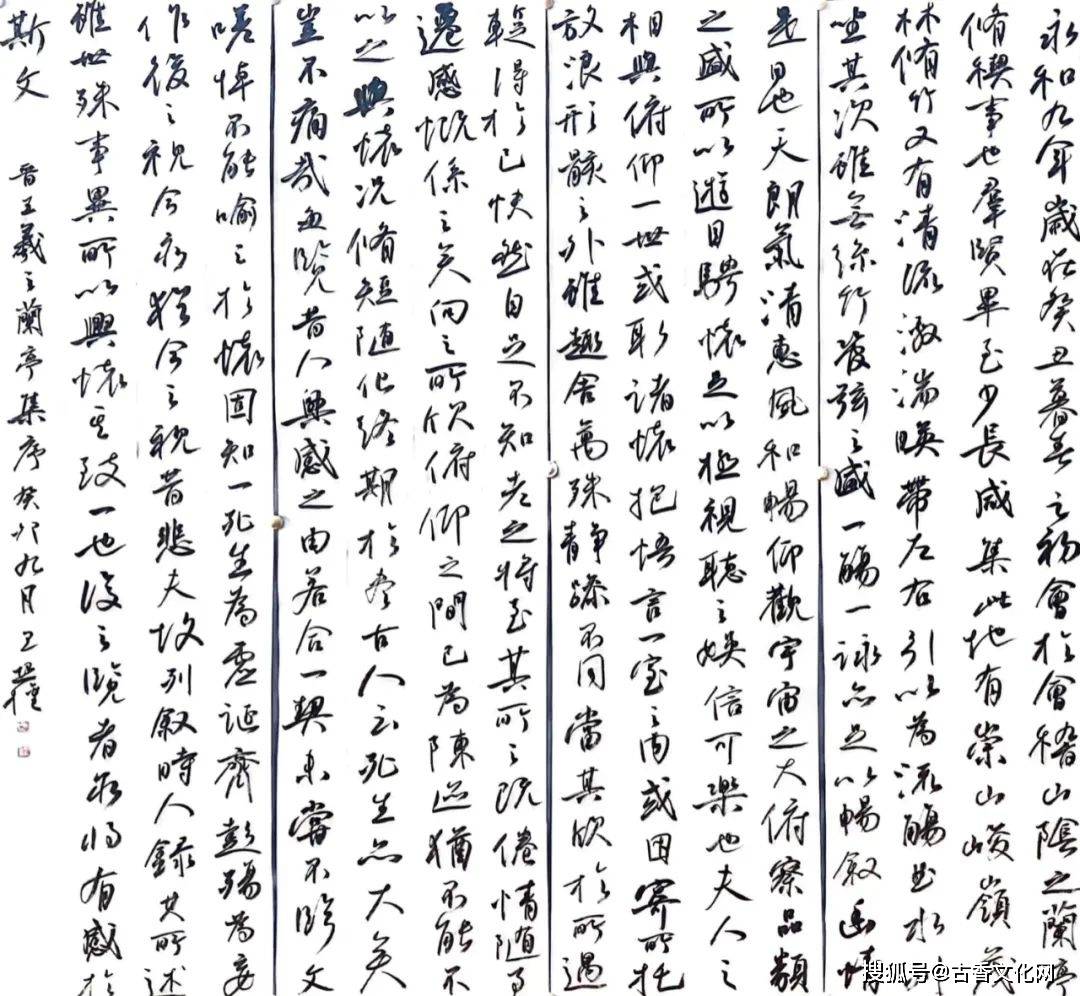 永和九年歲在癸丑暮春之初會於會稽山陰之蘭亭
脩禊事也羣賢畢至少長咸集此地有崇山峻嶺茂
林脩竹又有清流激湍暎帶左右引以為流觴曲水
坐其次雖無絲竹管弦之盛一觴一詠亦足以暢叙幽情
是日也天朗氣清惠風和暢仰觀宇宙之大俯察品類
之盛所以遊目騁懷足以極視聽之娛信可樂也夫人之
相與俯仰一世或取諸懷抱悟言一室之內或因寄所托
放浪形骸之外雖趣舍萬殊靜躁不同當其欣於所遇
蹔得於己快然自足不知老之將至其所之既倦情隨事
遷感慨係之矣向之所欣俯仰之間已為陳迹猶不能不
以之興懷況脩短隨化終期於盡古人云死生亦大矣
豈不痛哉每覽昔人興感之由若合一契未嘗不臨文
嗟悼不能喻之於懷固知一死生為虛誕齊彭殤為妄
作後之視今亦猶今之視昔悲夫故列叙時人錄其所述
雖世殊事異所以興懷其致一也後之覽者亦將有感於
斯文 晉王羲之蘭亭集序 癸卯九月 王
搜狐号@古香文化网